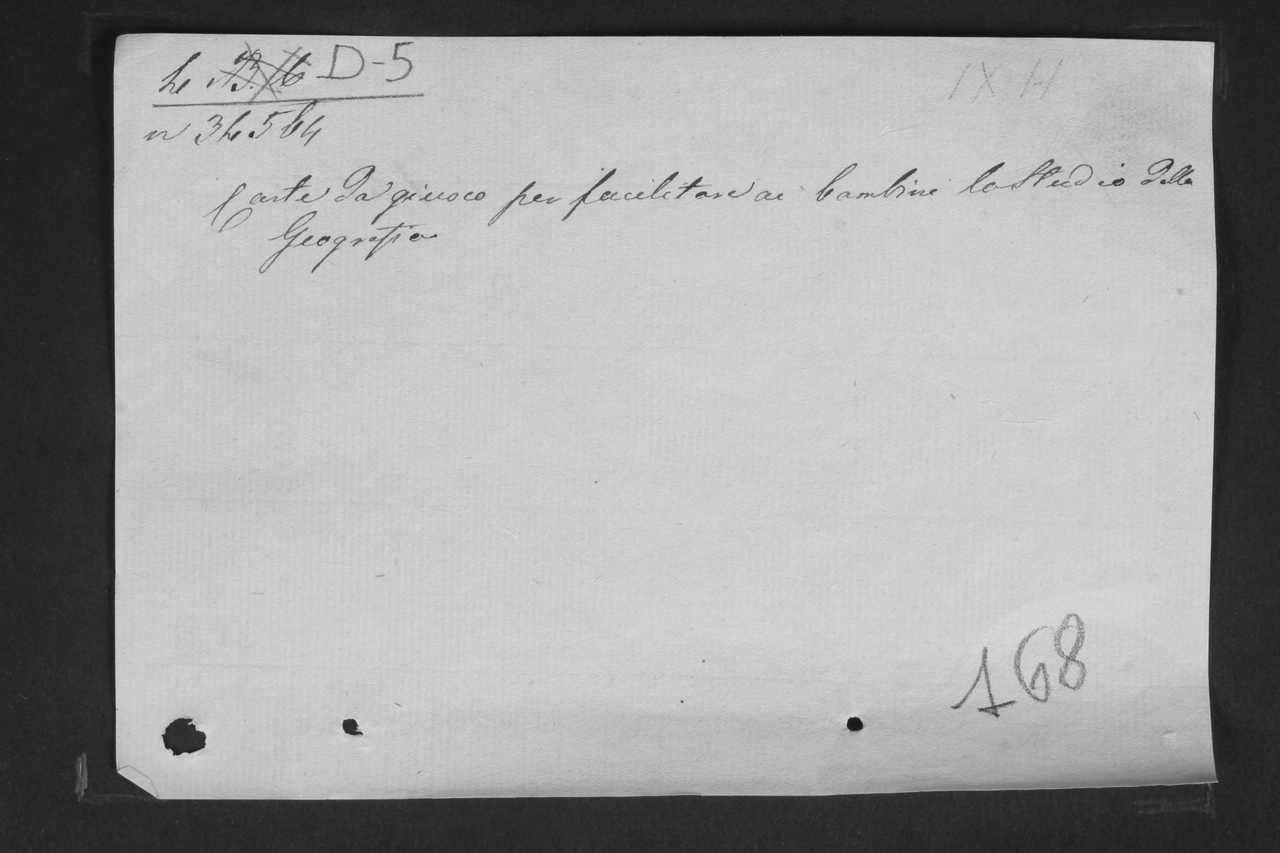 4 B. 6 D-5
IX H
n 34564
Carte da giuoco per facilitare ai bambini lo studio della
Geografia
168